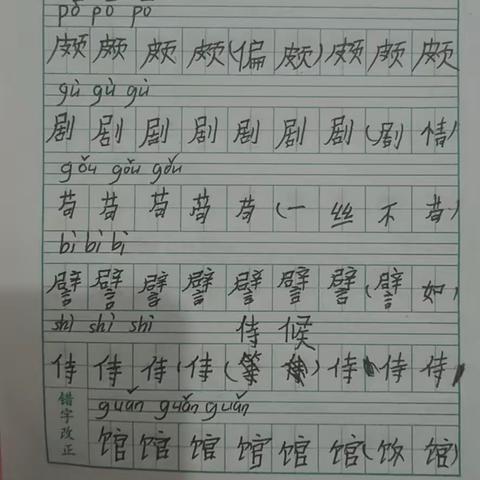 pō pō pō
颇颇颇颇(偏颇)颇颇颇
gù gù gù
剧剧剧剧剧剧剧(剧情)
gǒu gǒu gǒu
苟苟苟苟苟(一丝不苟)
bì bì bì
譬譬譬譬譬譬譬(譬如)
shì shì shì 侍候
侍侍侍(侍()侍侍侍
错字改正
guǎn guǎn guǎn
馆馆馆馆馆馆(饭馆)